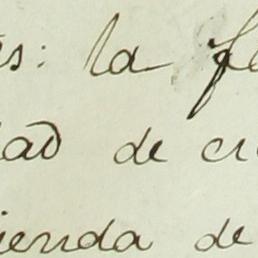 s: la fe
dad de cu
ienda de